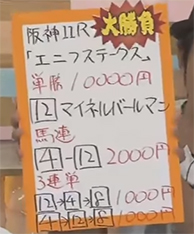 阪神11R
大勝負
「エニフステークス」
単勝10000円
12 マイネルバールマン
馬連
4-12 2000円
3連単
12→4→8 1000円
4→12→8 1000円